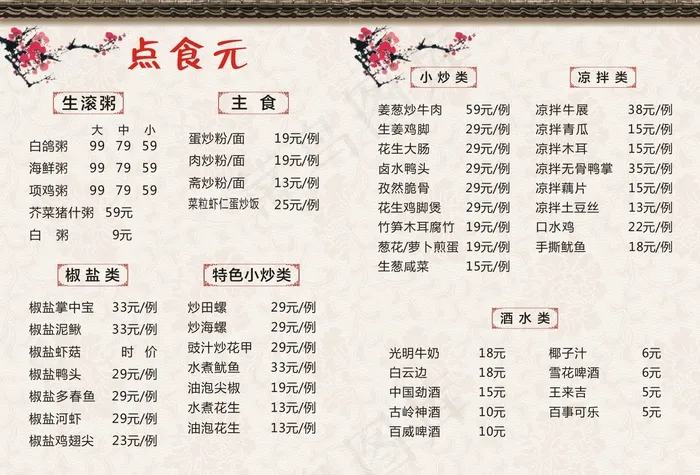 点食元
生滚粥
大 中 小
白鸽粥 99 79 59
海鲜粥 99 79 59
项鸡粥 99 79 59
芥菜猪什粥 59元
白 粥 9元
主 食
蛋炒粉/面 19元/例
肉炒粉/面 19元/例
斋炒粉/面 13元/例
菜粒虾仁蛋炒饭 25元/例
椒盐类
椒盐掌中宝 33元/例
椒盐泥鳅 33元/例
椒盐虾菇 时 价
椒盐鸭头 29元/例
椒盐多春鱼 29元/例
椒盐河虾 29元/例
椒盐鸡翅尖 23元/例
特色小炒类
炒田螺 29元/例
炒海螺 29元/例
豉汁炒花甲 29元/例
水煮鱿鱼 33元/例
油泡尖椒 19元/例
水煮花生 13元/例
油泡花生 13元/例
小炒类
姜葱炒牛肉 59元/例
生姜鸡脚 29元/例
花生大肠 29元/例
卤水鸭头 29元/例
孜然脆骨 29元/例
花生鸡脚煲 29元/例
竹笋木耳腐竹 19元/例
葱花/萝卜煎蛋 19元/例
生葱咸菜 15元/例
凉拌类
凉拌牛展 38元/例
凉拌青瓜 15元/例
凉拌木耳 15元/例
凉拌无骨鸭掌 35元/例
凉拌藕片 15元/例
凉拌土豆丝 13元/例
口水鸡 22元/例
手撕鱿鱼 18元/例
酒水类
光明牛奶 18元
白云边 18元
中国劲酒 15元
古岭神酒 10元
百威啤酒 10元
椰子汁 6元
雪花啤酒 6元
王来吉 5元
百事可乐 5元